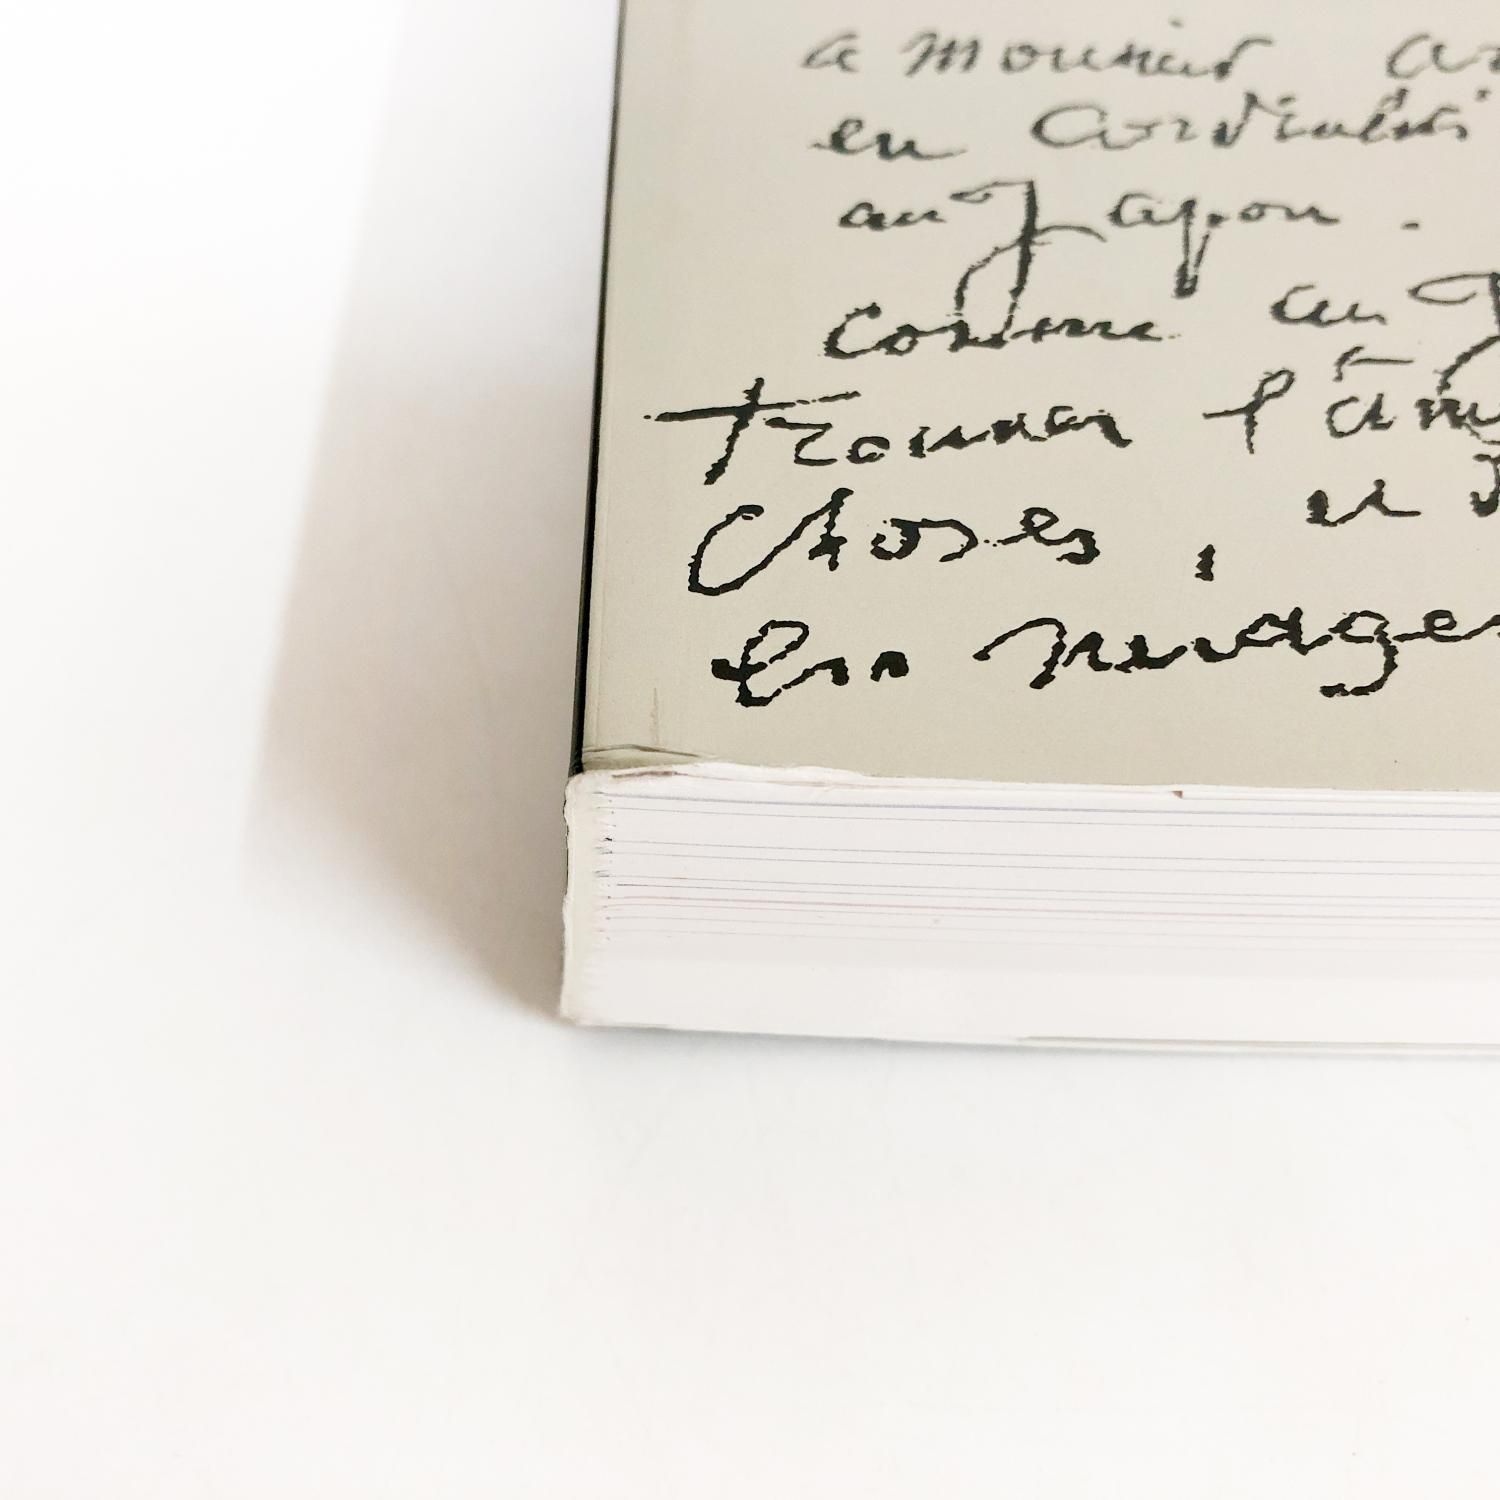 a monsieur
en cordialité
au Japon.
comme au J
trouver l'âm
choses, et
les nuages